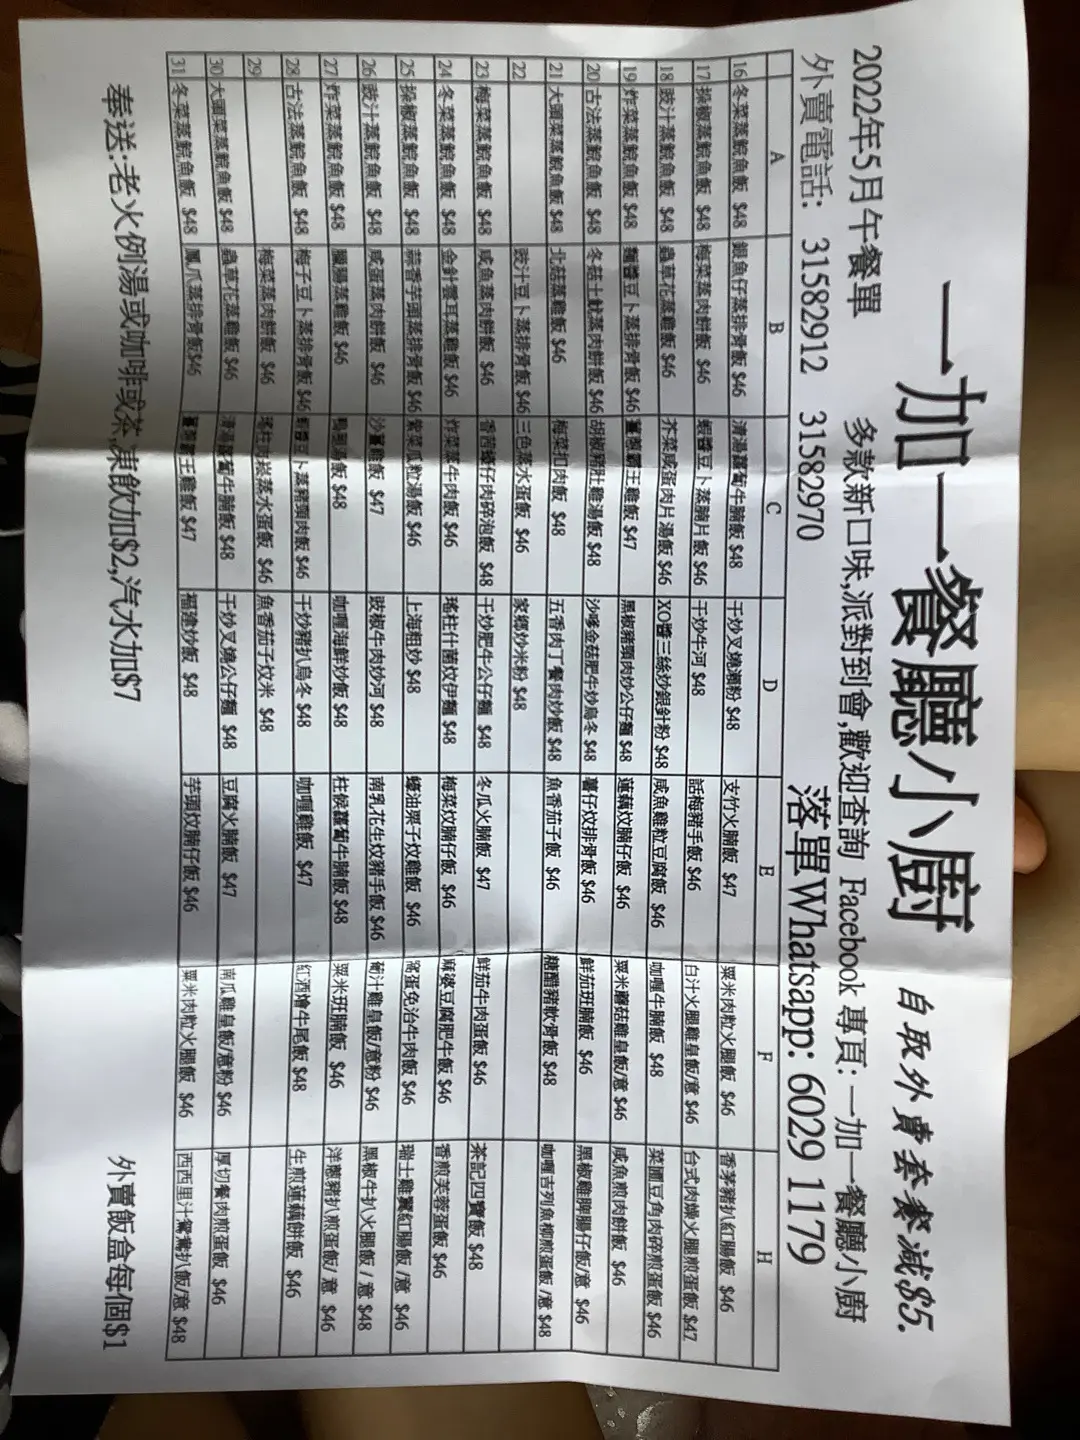 一加一餐廳小廚
自取外賣套餐減$5.
2022年5月午餐單 多款新口味,派對到會,歡迎查詢 Facebook 專頁: 一加一餐廳小廚
外賣電話: 31582912 31582970 落單Whatsapp: 6029 1179
A B C D E F H
16 冬菜蒸鯇魚飯 $48 銀魚仔蒸排骨飯 $46 清湯蘿蔔牛腩飯 $48 干炒叉燒瀨粉 $48 支竹火腩飯 $47 粟米肉粒火腿飯 $46 香茅豬扒紅腸飯 $46
17 揀椒蒸鯇魚飯 $48 梅菜蒸肉餅飯 $46 蝦醬豆卜蒸腩片飯 $46 干炒牛河 $48 話梅豬手飯 $46 白汁火腿雞皇飯/意 $46 台式肉燥火腿煎蛋飯 $47
18 豉汁蒸鯇魚飯 $48 蟲草花蒸雞飯 $46 芥菜咸蛋肉片湯飯 $46 XO醬三絲炒銀針粉 $48 咸魚雞粒豆腐飯 $46 咖喱牛腩飯 $48 菜圃豆角肉碎煎蛋飯 $46
19 炸菜蒸鯇魚飯 $48 麵醬豆卜蒸排骨飯 $46 薑蔥霸王雞飯 $47 黑椒豬頸肉炒公仔麵 $48 蓮藕炆腩仔飯 $46 粟米蘑菇雞皇飯/意 $46 咸魚煎肉餅飯 $46
20 古法蒸鯇魚飯 $48 冬菇土魷蒸肉餅飯 $46 胡椒豬肚雞湯飯 $48 沙嗲金菇肥牛炒烏冬 $48 薯仔炆排骨飯 $46 鮮茄班腩飯 $46 黑椒雞脾腸仔飯/意 $46
21 大頭菜蒸鯇魚飯 $48 北菇蒸雞飯 $46 梅菜扣肉飯 $48 五香肉丁餐肉炒飯 $48 魚香茄子飯 $46 糖醋豬軟骨飯 $48 咖喱吉列魚柳煎蛋飯/意 $48
22 豉汁豆卜蒸排骨飯 $46 三色蒸水蛋飯 $46 家鄉炒米粉 $48
23 梅菜蒸鯇魚飯 $48 咸魚蒸肉餅飯 $46 香茜仔肉碎泡飯 $48 干炒肥牛公仔麵 $48 冬瓜火腩飯 $47 鮮茄牛肉蛋飯 $46 茶記四寶飯 $48
24 冬菜蒸鯇魚飯 $48 金針雲耳蒸雞飯 $46 炸菜蒸牛肉飯 $46 瑤柱什菌炆伊麵 $48 梅菜炆腩仔飯 $46 麻婆豆腐肥牛飯 $46 香煎芙蓉蛋飯 $46
25 揀椒蒸鯇魚飯 $48 蒜香芋頭蒸排骨飯 $46 紫菜瓜粒湯飯 $46 上海粗炒 $48 蠔油栗子炆雞飯 $46 窩蛋免治牛肉飯 $46 瑞士雞翼紅腸飯/意 $46
26 豉汁蒸鯇魚飯 $48 咸蛋蒸肉餅飯 $46 沙薑雞飯 $47 豉椒牛肉炒河 $48 南乳花生炆豬手飯 $46 葡汁雞皇飯/意粉 $46 黑椒牛扒火腿飯/意 $48
27 炸菜蒸鯇魚飯 $48 臘腸蒸雞飯 $46 湯飯 $48 咖喱海鮮炒飯 $48 柱候蘿蔔牛腩飯 $48 粟米班腩飯 $46 洋蔥豬扒煎蛋飯/意 $46
28 古法蒸鯇魚飯 $48 梅子豆卜蒸排骨飯 $46 蝦醬豆卜蒸豬頸肉飯 $46 干炒豬扒烏冬 $48 咖喱雞飯 $47 紅酒燴牛尾飯 $48 生煎蓮藕餅飯 $46
29 梅菜蒸肉餅飯 $46 瑤柱肉崧蒸水蛋飯 $46 魚香茄子炆米 $48
30 大頭菜蒸鯇魚飯 $48 蟲草花蒸雞飯 $46 清湯蘿蔔牛腩飯 $48 干炒叉燒公仔麵 $48 豆腐火腩飯 $47 南瓜雞皇飯/意粉 $46 厚切餐肉煎蛋飯 $46
31 冬菜蒸鯇魚飯 $48 鳳爪蒸排骨飯$46 薑蔥霸王雞飯 $47 福建炒飯 $48 芋頭炆腩仔飯 $46 粟米肉粒火腿飯 $46 西西里汁鴛鴦扒飯/意 $48
奉送:老火例湯或咖啡或茶,凍飲加$2,汽水加$7 外賣飯盒每個$1